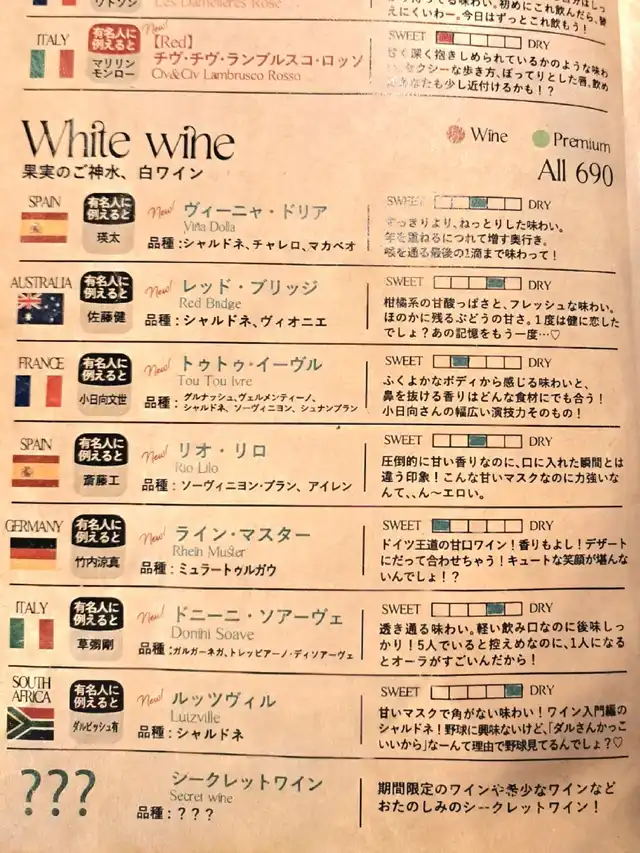 ワトソン
Les Damelières Rosé
えにくいわー。今日はずっとこれ飲んだら、
ITALY
有名人に
例えると
マリリン
モンロー
New!
【Red】
チヴ・チヴ・ランブルスコ・ロッソ
Civ&Civ Lambrusco Rosso
SWEET
DRY
甘く深く抱きしめられているかのような味わ
セクシーな歩き方、ぽってりとした唇。飲め
あなたも少し近付けるかも！？
White wine
果実のご神水、白ワイン
Wine
Premium
All 690
SPAIN
有名人に
例えると
瑛太
New!
ヴィーニャ・ドリア
Viña Dolla
品種：シャルドネ、チャレロ、マカベオ
SWEET
DRY
すっきりより、ねっとりした味わい。
年を重ねるにつれて増す奥行き。
喉を通る最後の1滴まで味わって！
AUSTRALIA
有名人に
例えると
佐藤健
New!
レッド・ブリッジ
Red Bridge
品種：シャルドネ、ヴィオニエ
SWEET
DRY
柑橘系の甘酸っぱさと、フレッシュな味わい。
ほのかに残るぶどうの甘さ。1度は健に恋した
でしょ？あの記憶をもう一度…♡
FRANCE
有名人に
例えると
小日向文世
New!
トゥトゥ・イーヴル
Tou Tou Ivre
品種：グルナッシュ、ヴェルメンティーノ、
シャルドネ、ソーヴィニヨン、シュナンブラン
SWEET
DRY
ふくよかなボディから感じる味わいと、
鼻を抜ける香りはどんな食材にでも合う！
小日向さんの幅広い演技力そのもの！
SPAIN
有名人に
例えると
斎藤工
New!
リオ・リロ
Rio Lilo
品種：ソーヴィニヨン・ブラン、アイレン
SWEET
DRY
圧倒的に甘い香りなのに、口に入れた瞬間とは
違う印象！こんな甘いマスクなのに力強いな
んて、、ん～エロい。
GERMANY
有名人に
例えると
竹内涼真
New!
ライン・マスター
Rhein Muster
品種：ミュラートゥルガウ
SWEET
DRY
ドイツ王道の甘口ワイン！香りもよし！デザート
にだって合わせちゃう！キュートな笑顔が堪んな
いんでしょ！？
ITALY
有名人に
例えると
草彅剛
New!
ドニーニ・ソアーヴェ
Donini Soave
品種：ガルガーネガ、トレッビアーノ・ディソアーヴェ
SWEET
DRY
透き通る味わい。軽い飲み口なのに後味しっ
かり！5人でいると控えめなのに、1人になる
とオーラがすごいんだから！
SOUTH
AFRICA
有名人に
例えると
ダルビッシュ有
New!
ルッツヴィル
Lutzville
品種：シャルドネ
SWEET
DRY
甘いマスクで角がない味わい！ワイン入門編の
シャルドネ！野球に興味ないけど、「ダルさんかっこ
いいから」なーんて理由で野球見てるんでしょ？♡
???
シークレットワイン
Secret wine
品種：？？？
期間限定のワインや希少なワインなど
おたのしみのシークレットワイン！